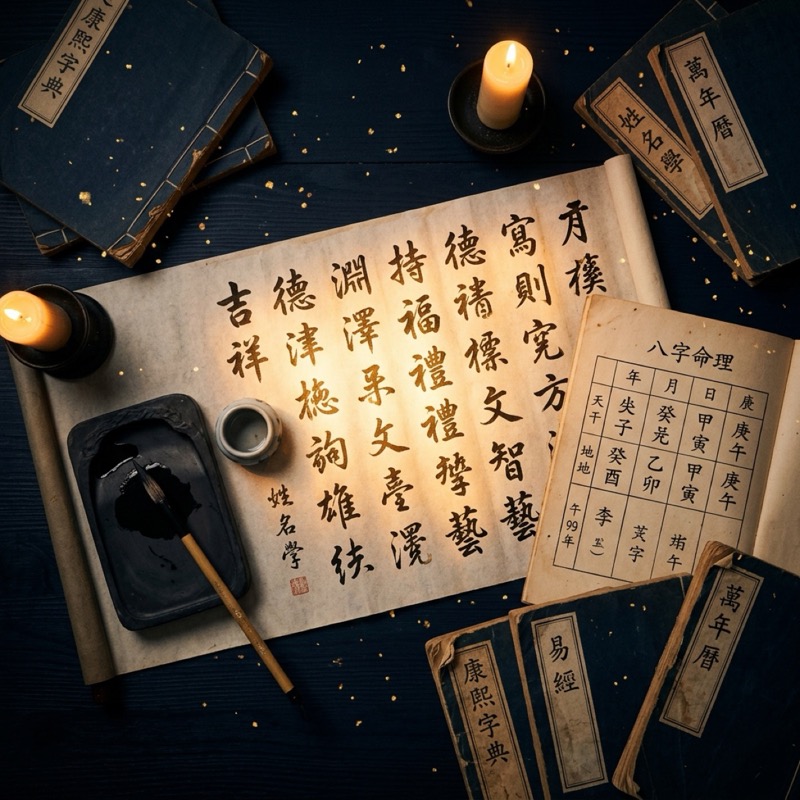 康熙字典
萬年曆
姓名學
寫則究方
德標文智藝
持福禮禮藝
淵澤采文臺
德津詢雄
吉祥
姓名学
八字命理
年 月 日 庚
天干 子 癸 甲寅 庚午
地地 癸酉 乙卯 甲寅 庚午
午99年 李 字 午
康熙字典
易經
萬年曆